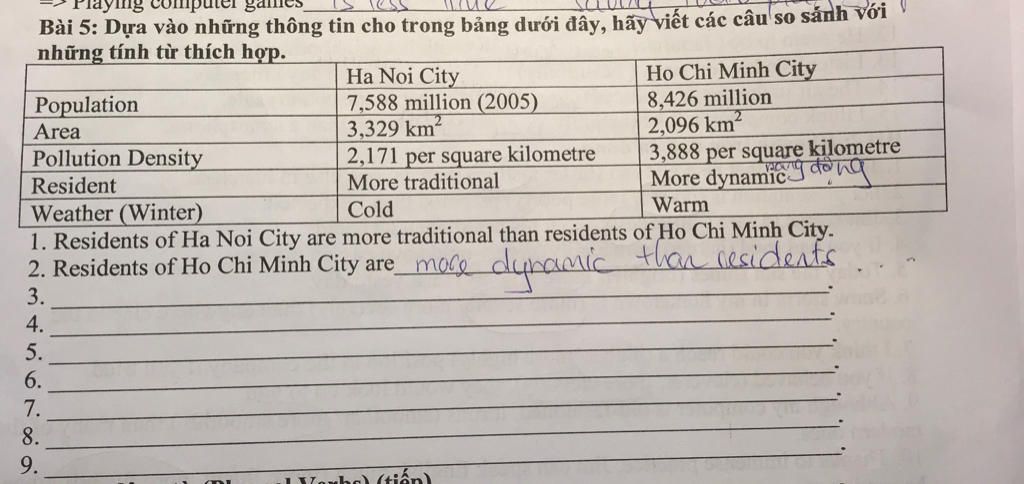 => Playing computer games is less
Bài 5: Dựa vào những thông tin cho trong bảng dưới đây, hãy viết các câu so sánh với
những tính từ thích hợp.
Ha Noi City Ho Chi Minh City
Population 7,588 million (2005) 8,426 million
Area 3,329 km² 2,096 km²
Pollution Density 2,171 per square kilometre 3,888 per square kilometre
Resident More traditional More dynamic năng động
Weather (Winter) Cold Warm
1. Residents of Ha Noi City are more traditional than residents of Ho Chi Minh City.
2. Residents of Ho Chi Minh City are more dynamic than residents
3. .
4. .
5. .
6. .
7. .
8. .
9. .
Verbs) (tiếp)